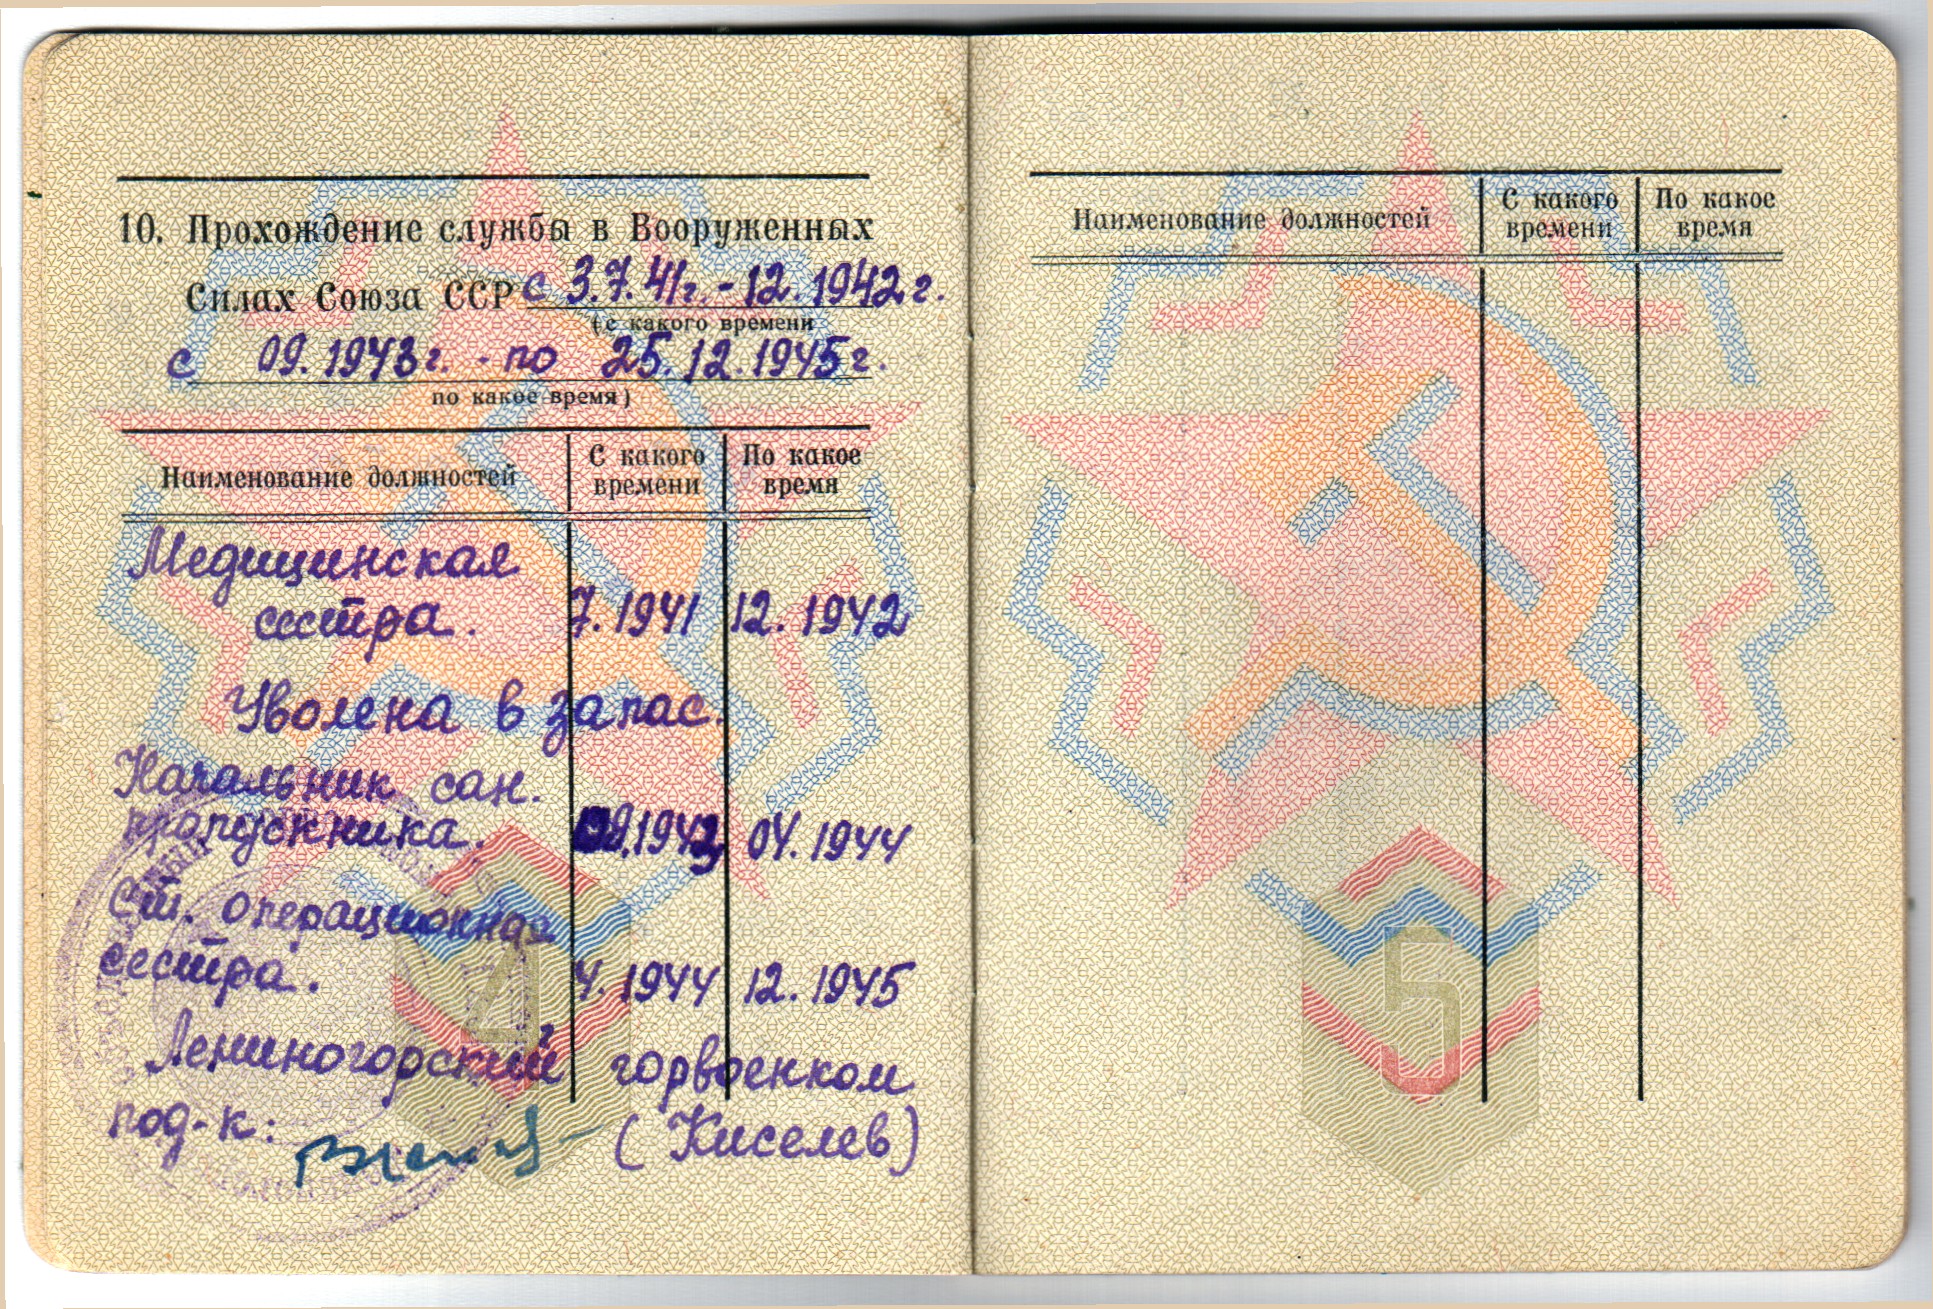 10. Прохождение службы в Вооруженных
Силах Союза ССР с 3.7.41г. - 12.1942г.
(с какого времени
с 09.1943г. - по 25.12.1945г.
по какое время)
Наименование должностей С какого времени По какое время
Медицинская
сестра. 7.1941 12.1942
Уволена в запас.
Начальник сан.
пропускника. 09.1943 04.1944
Ст. операционная
сестра. 4.1944 12.1945
Лениногорский горвоенком
под-к: (Киселев)
4
Наименование должностей С какого времени По какое время
5